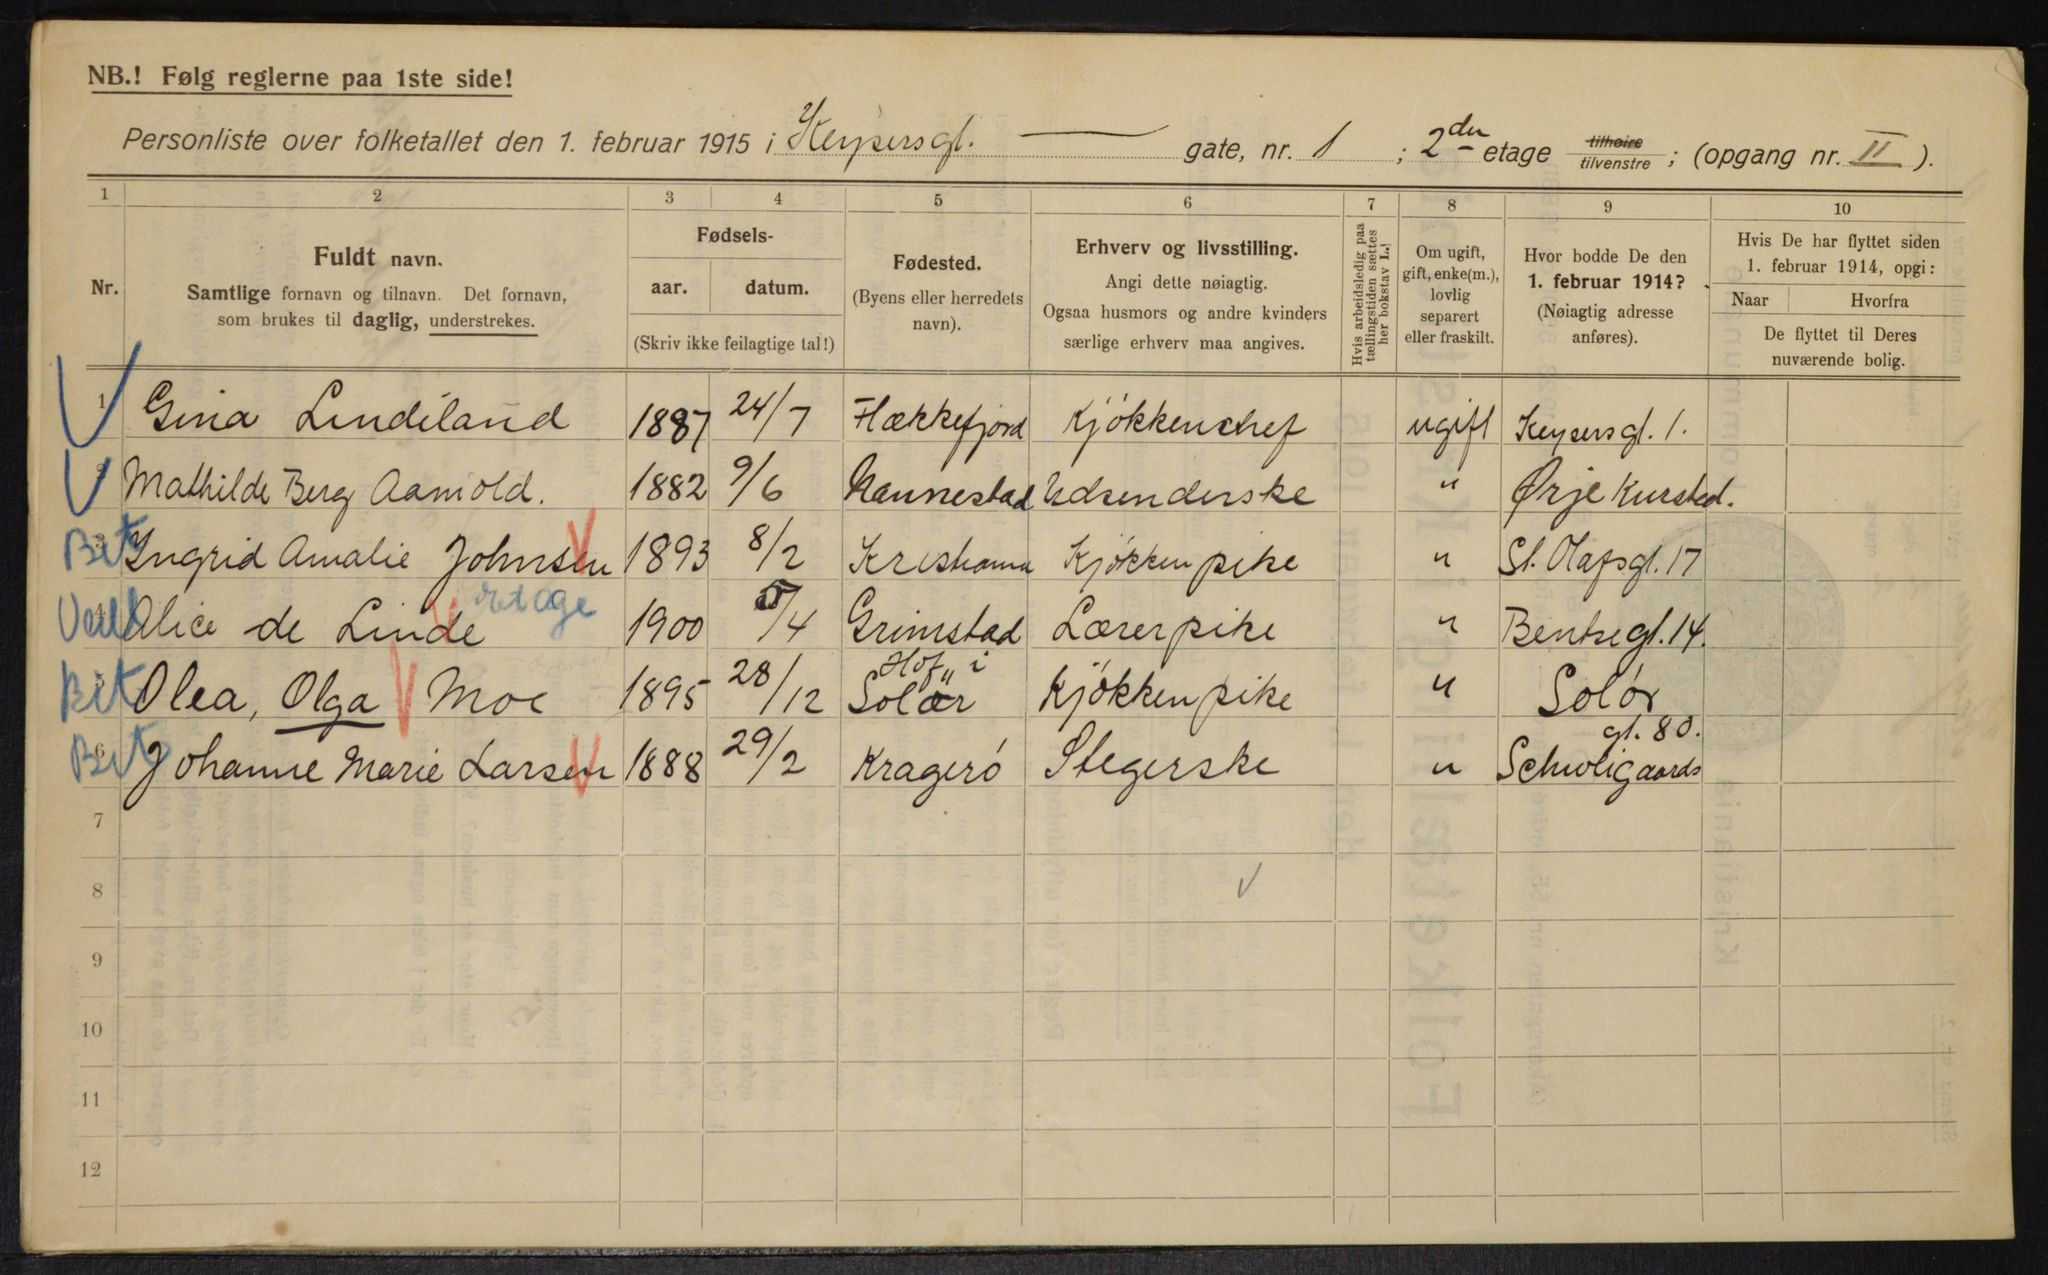 NB.! Følg reglerne paa 1ste side!
Personliste over folketallet den 1. februar 1915 i Keysersgt. gate, nr. 1 ; 2den etage tilhøire tilvenstre ; (opgang nr. II ).
1 2 3 4 5 6 7 8 9 10
Nr.
Fuldt navn.
Samtlige fornavn og tilnavn. Det fornavn,
som brukes til daglig, understrekes.
Fødsels-
aar. datum.
(Skriv ikke feilagtige tal!)
Fødested.
(Byens eller herredets
navn).
Erhverv og livsstilling.
Angi dette nøiagtig.
Ogsaa husmors og andre kvinders
særlige erhverv maa angives.
Hvis arbeidsledig paa
tællingstiden sættes
her bokstav L.!
Om ugift,
gift, enke(m.),
lovlig
separert
eller fraskilt.
Hvor bodde De den
1. februar 1914?
(Nøiagtig adresse
anføres).
Hvis De har flyttet siden
1. februar 1914, opgi:
Naar Hvorfra
De flyttet til Deres
nuværende bolig.
1 Gina Lindeland 1887 24/7 Flækkefjord Kjøkkenchef ugift Keysersgt. 1.
2 Mathilde Berg Aamold. 1882 9/6 Nannestad Udsenderske " Ørje Kursted.
Bet 3 Ingrid Amalie Johnsen 1893 8/2 Kristiania Kjøkkenpike " St. Olafsgt. 17
4 Alice de Linde etage 1900 /4 Grimstad Lærerpike " Bentsegt. 14.
Hof i
Bet 5 Olea, Olga Moe 1895 28/12 Solør Kjøkkenpike " Solør
gt. 80.
Bet 6 Johanne Marie Larsen 1888 29/2 Kragerö Stegerske " Schweigaards
7
8
9
10
11
12